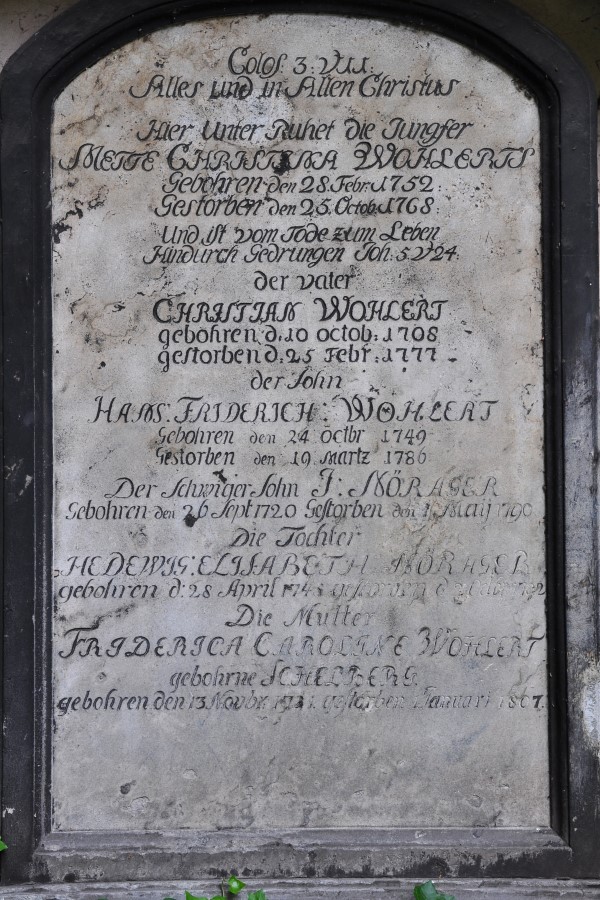 Colos. 3: V.11.
Alles und in Allen Christus
Hier Unter Ruhet die Jungfer
METTE CHRISTINA WOHLERTS
Gebohren den 28. Febr. 1752.
Gestorben den 25. Octob. 1768.
Und ist vom Tode zum Leben
Hindurch Gedrungen Joh. 5. V 24.
der vater
CHRISTIAN WOHLERT
gebohren d. 10 octob: 1708
gestorben d. 25 Febr: 1777
der Sohn
HANS: FRIDERICH: WOHLERT
Gebohren den 24 octbr 1749
Gestorben den 19 Martz 1786
Der Schwiger Sohn J: NÖRAGER
Gebohren den 26 Sept 1720 Gestorben den 1 Maij 1790
Die Tochter
HEDEWIG: ELISABETH NÖRAGER
gebohren d: 28 April
Die Mutter
FRIDERICA CAROLINE WOHLERT
gebohrne SCHELBERG
gebohren den 13 Novbr. gestorben Januari 1807.